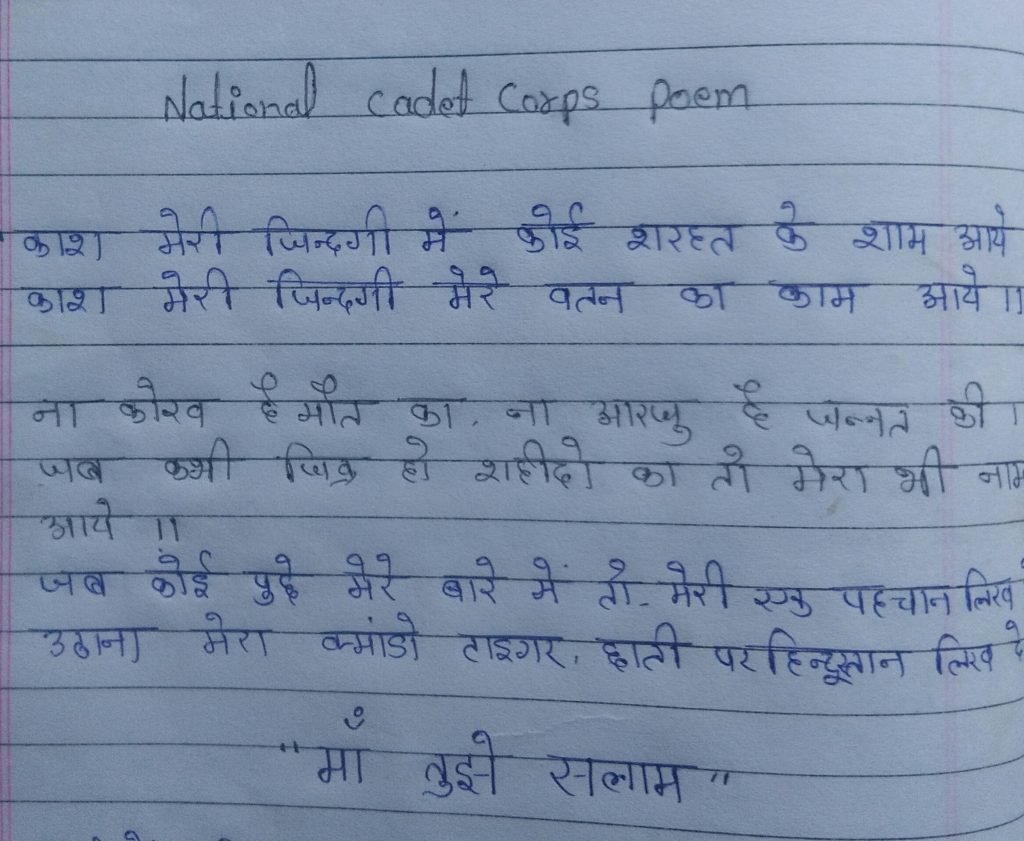 National Cadet Corps Poem
काश मेरी जिन्दगी में कोई शरहत के शाम आये
काश मेरी जिन्दगी मेरे वतन का काम आये ॥
ना कोख है मौत का, ना आरजु है जन्नत की ।
जब कभी जिक्र हो शहीदो का तो मेरा भी नाम
आये ॥
जब कोई पुछे मेरे बारे में तो मेरी एक पहचान लिख दे
उठाना मेरा कमांडो टाइगर, छाती पर हिन्दूस्तान लिख दे
"माँ तुझे सलाम"